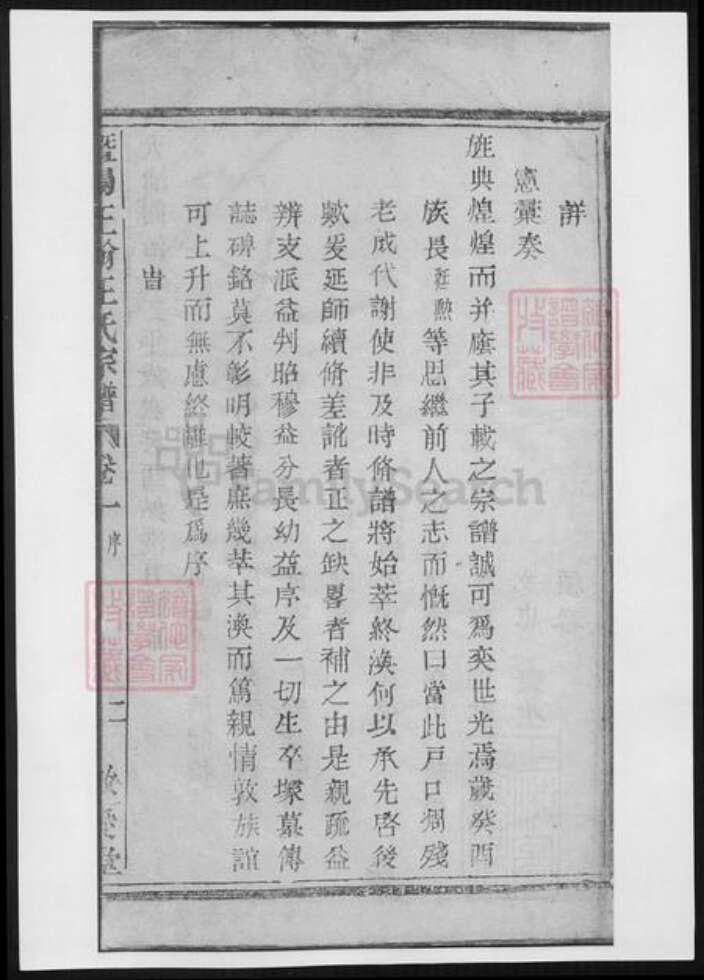 詳
憲彙奏
旌典煌煌而并賡其子載之宗譜誠可爲奕世光焉歲癸酉
族長 等思繼前人之志而慨然曰當此戸口凋殘
老成代謝使非及時脩譜將始萃終渙何以承先啓後
歟爰延師續脩差訛者正之缺畧者補之由是親疏益
辨支派益判昭穆益分長幼益序及一切生卒塚墓傳
誌碑銘莫不彰明較著庶幾萃其渙而篤親情敦族誼
可上升而無慮終離也是爲序
旹
王氏宗譜 卷一 序 二
FamilySearch